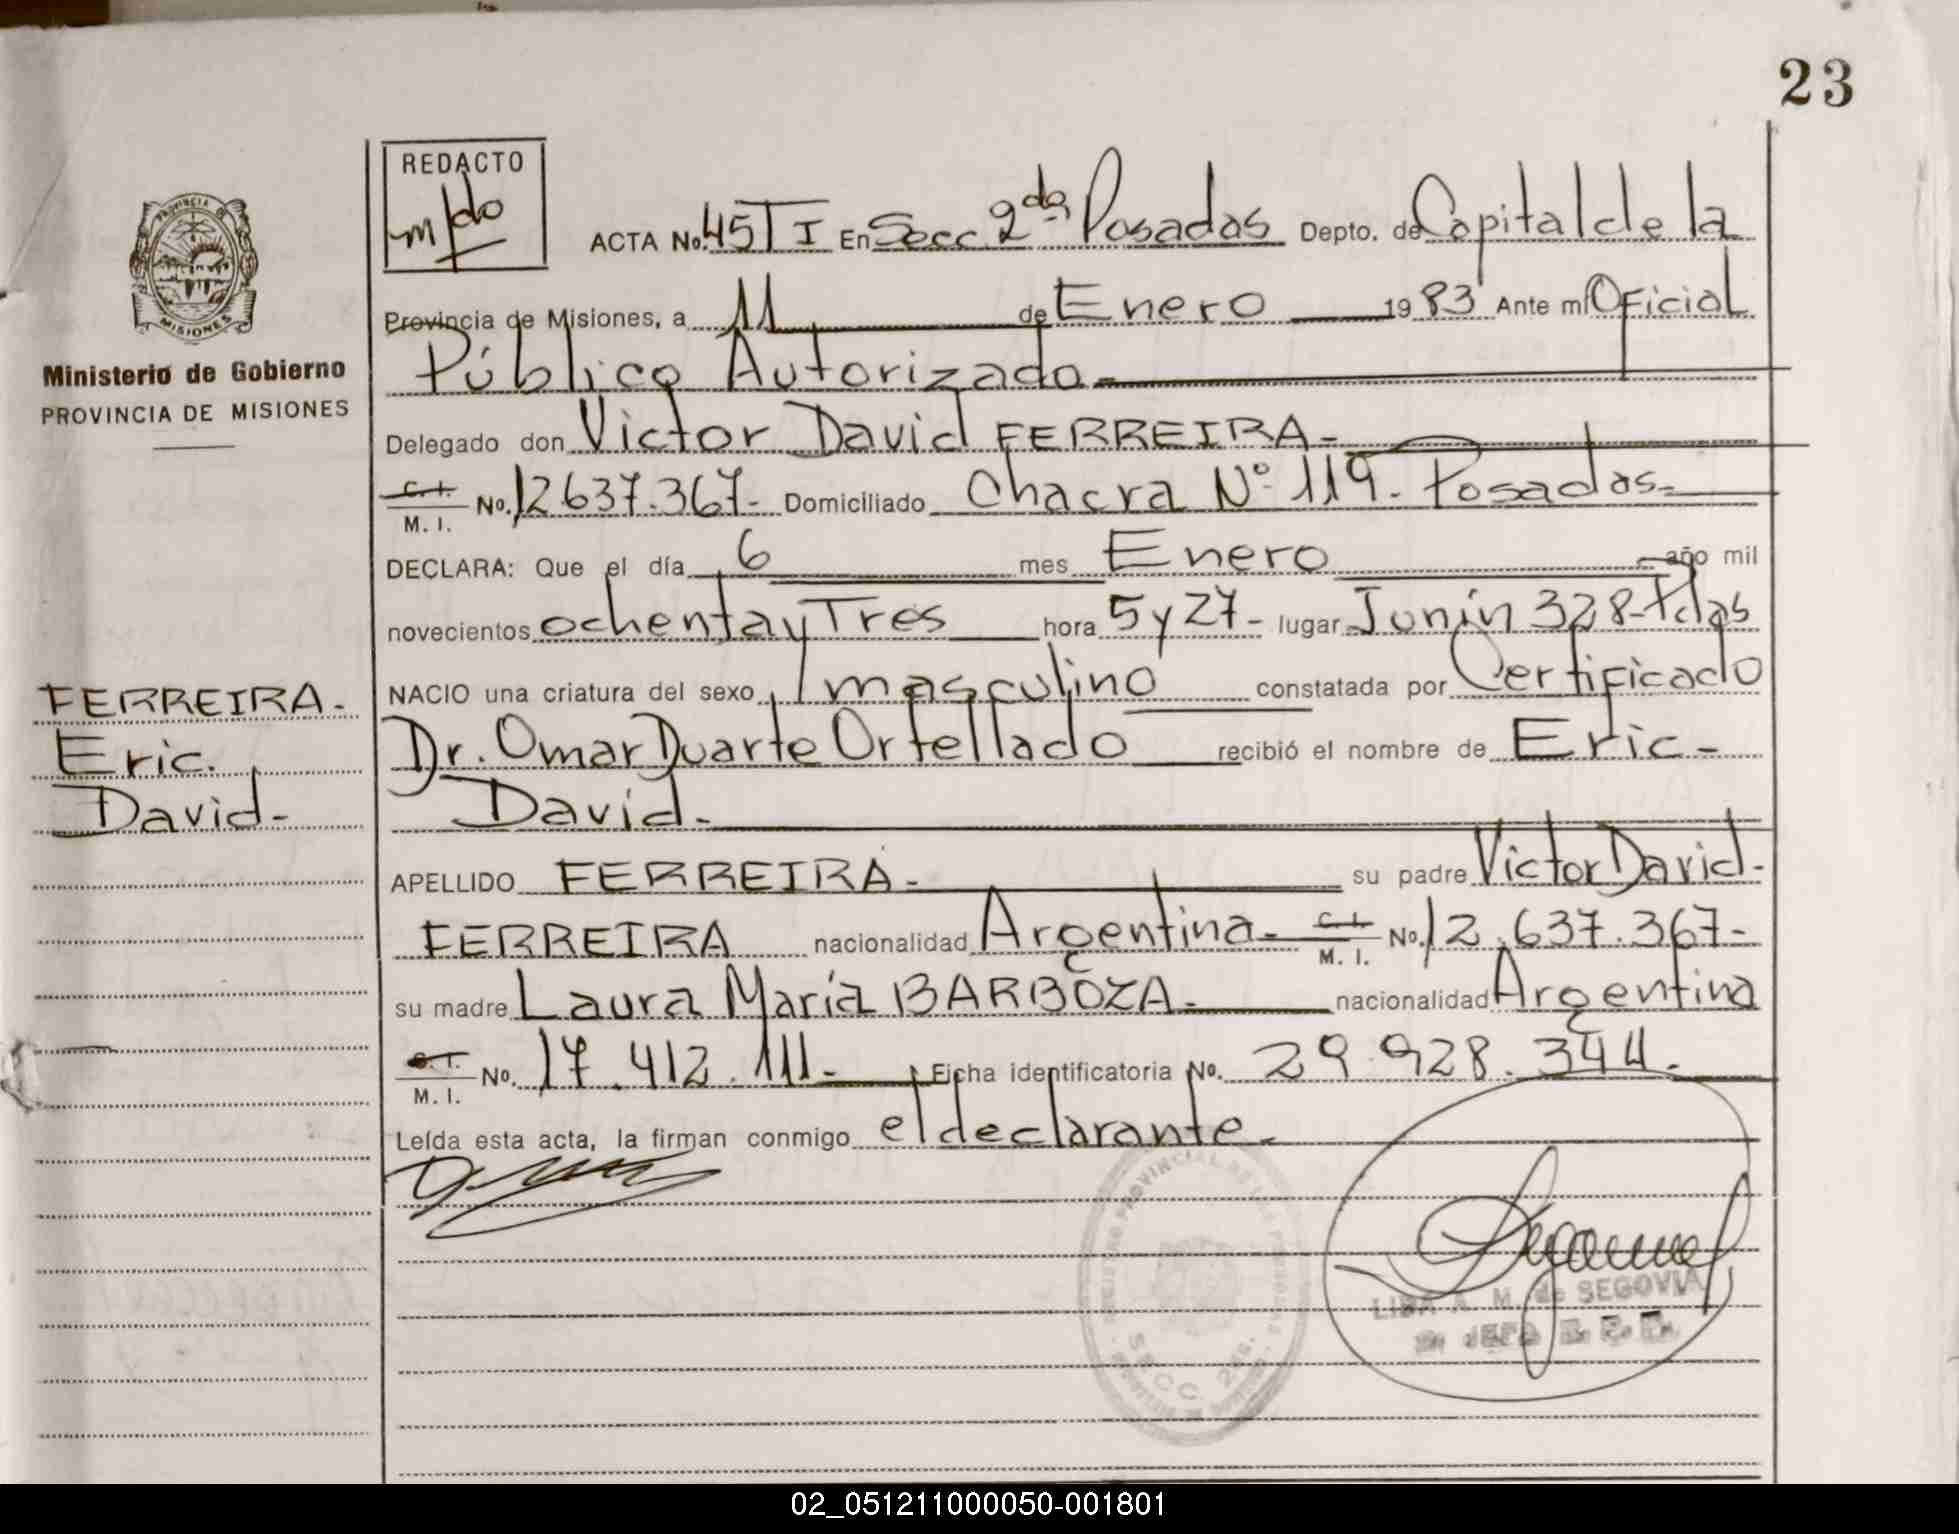 23
REDACTO
PROVINCIA DE
MISIONES
Ministerio de Gobierno
PROVINCIA DE MISIONES
ACTA No. 45 T I En Secc 2da Posadas Depto. de Capital de la
Provincia de Misiones, a 11 de Enero 1983 Ante mí Oficial
Público Autorizado.
Delegado don Victor David FERREIRA-
C. I. M. I. No. 12.637.367- Domiciliado Chacra Nº 119- Posadas-
DECLARA: Que el día 6 mes Enero año mil
novecientos ochenta y Tres hora 5 y 27- lugar Junín 328-Pdas
NACIO una criatura del sexo masculino constatada por Certificado
Dr. Omar Duarte Ortellado recibió el nombre de Eric-
David-
FERREIRA-
Eric.
David-
APELLIDO FERREIRA- su padre Victor David-
FERREIRA nacionalidad Argentina- C. I. M. I. No. 12.637.367-
su madre Laura María BARBOZA- nacionalidad Argentina
C. I. M. I. No. 17.412.111- Ficha identificatoria No. 29.928.344-
Leída esta acta, la firman conmigo el declarante-
REGISTRO PROVINCIAL DE LAS PERSONAS
SECC. 2da.
M. de SEGOVIA
JEFA
02_051211000050-001801